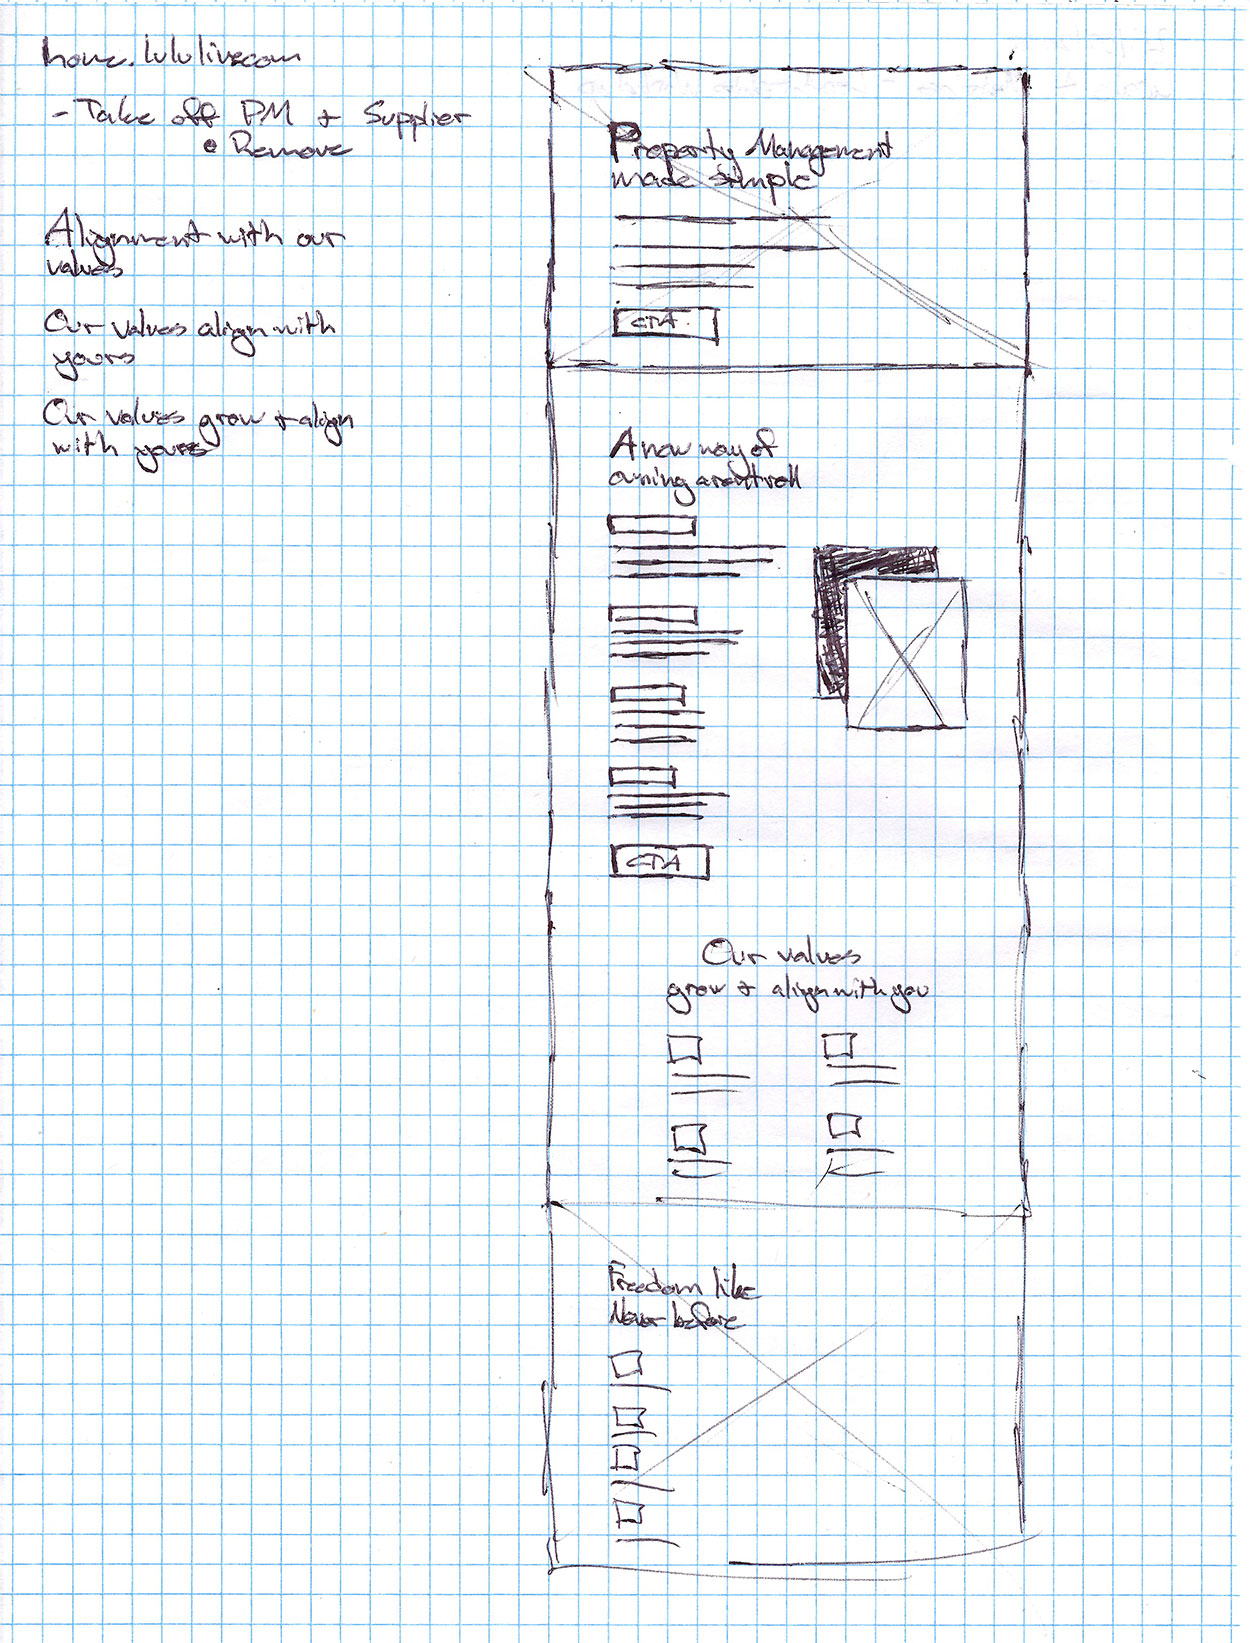 home.lululive.com
- Take off PM + Supplier
• Remove
Alignment with our
values
Our values align with
yours
Our values grow + align
with yours
Property Management
made simple
CTA
A new way of
owning a rent roll
CTA
Our values
grow + align with you
Freedom like
Never before